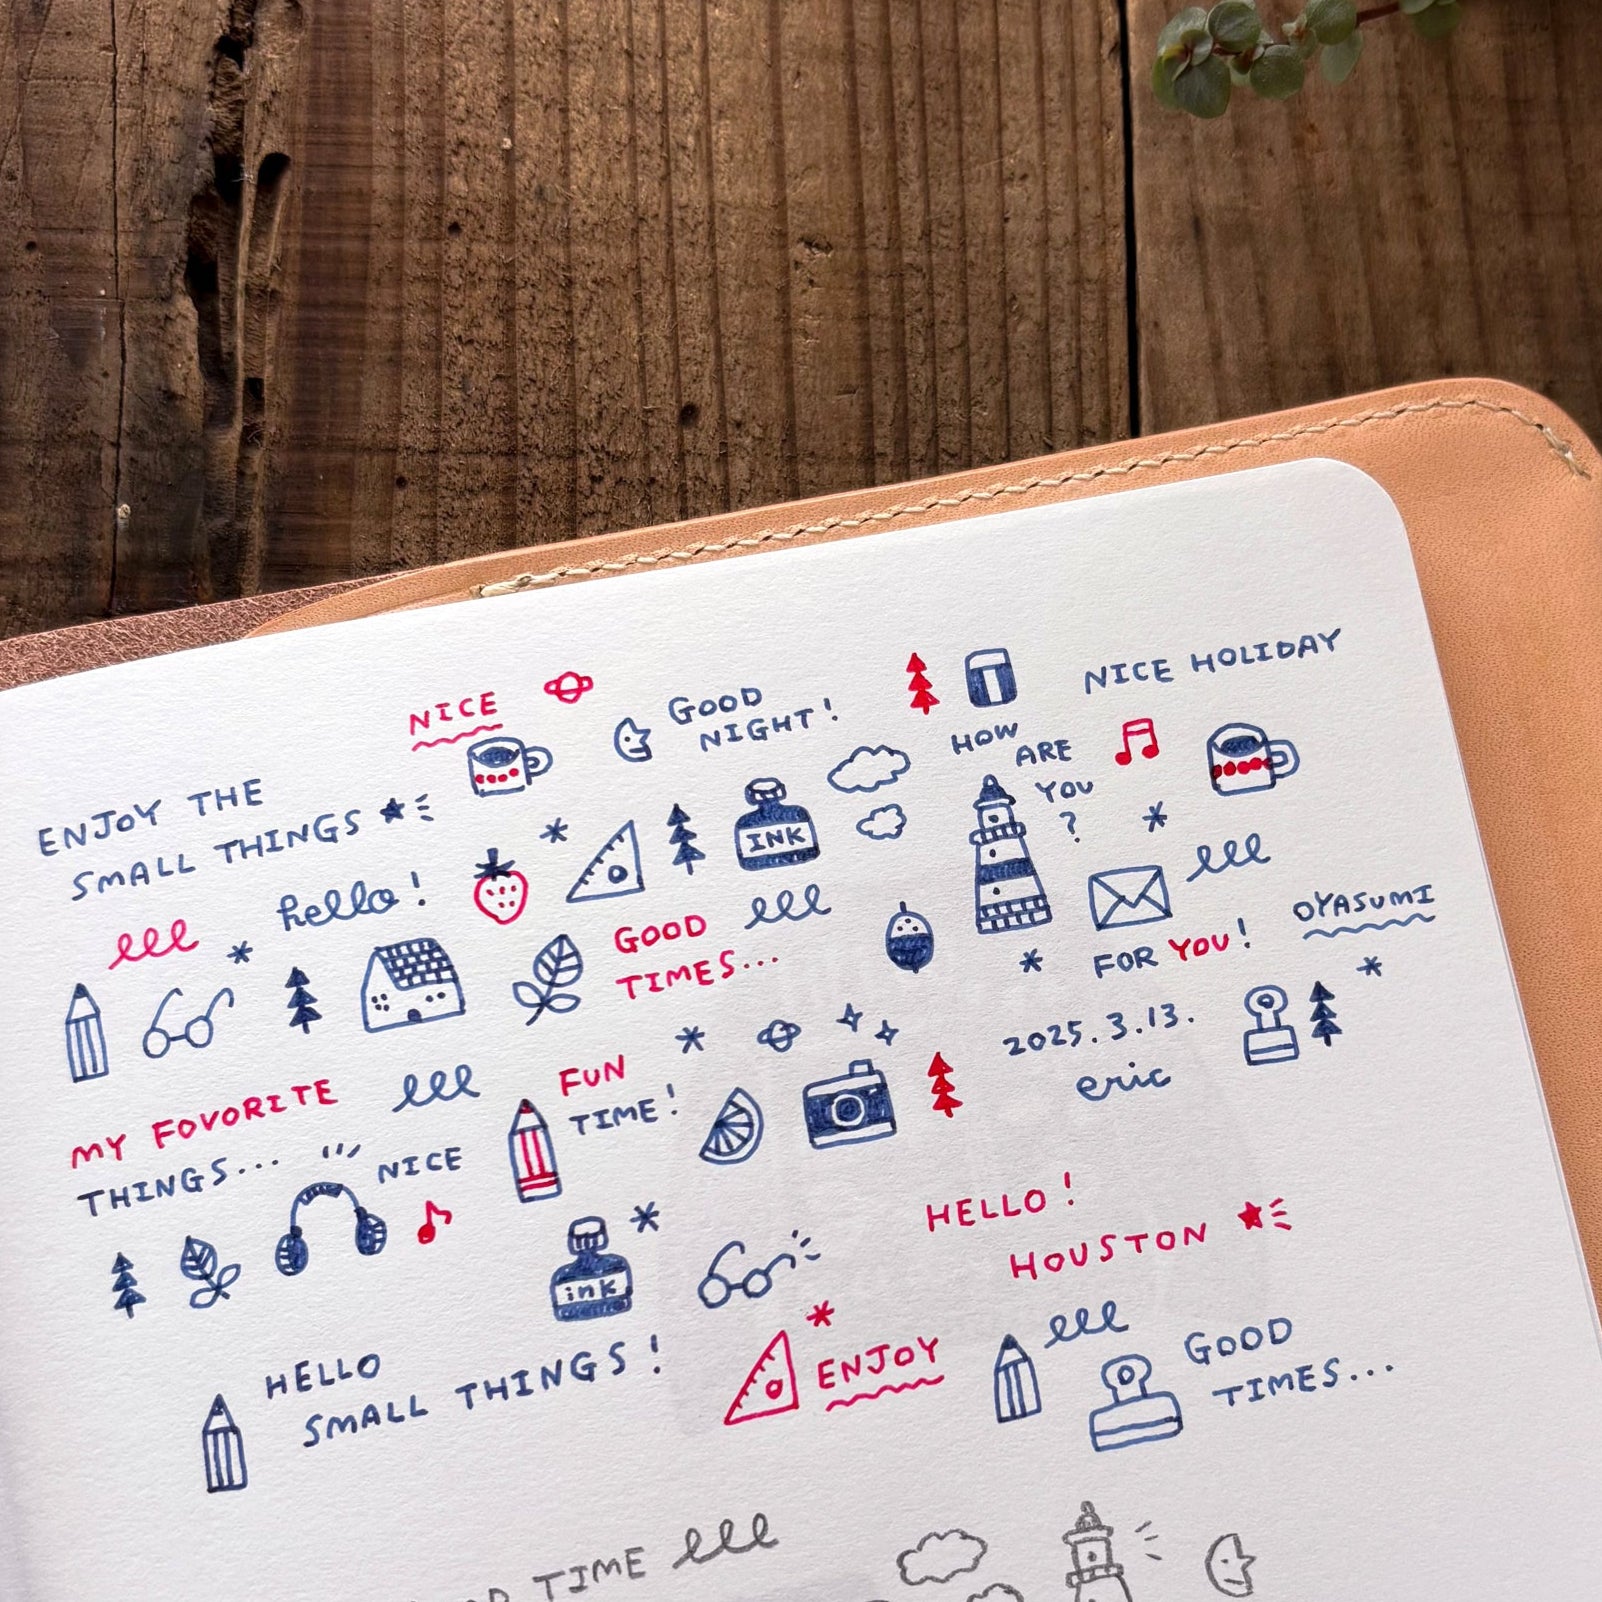 NICE
GOOD
NIGHT!
NICE HOLIDAY
HOW
ARE
YOU
?
ENJOY THE
SMALL THINGS
INK
hello!
GOOD
TIMES...
FOR YOU!
OYASUMI
2025.3.13.
eric
MY FOVORITE
THINGS...
NICE
FUN
TIME!
ink
HELLO!
HOUSTON
HELLO
SMALL THINGS!
ENJOY
GOOD
TIMES...
TIME